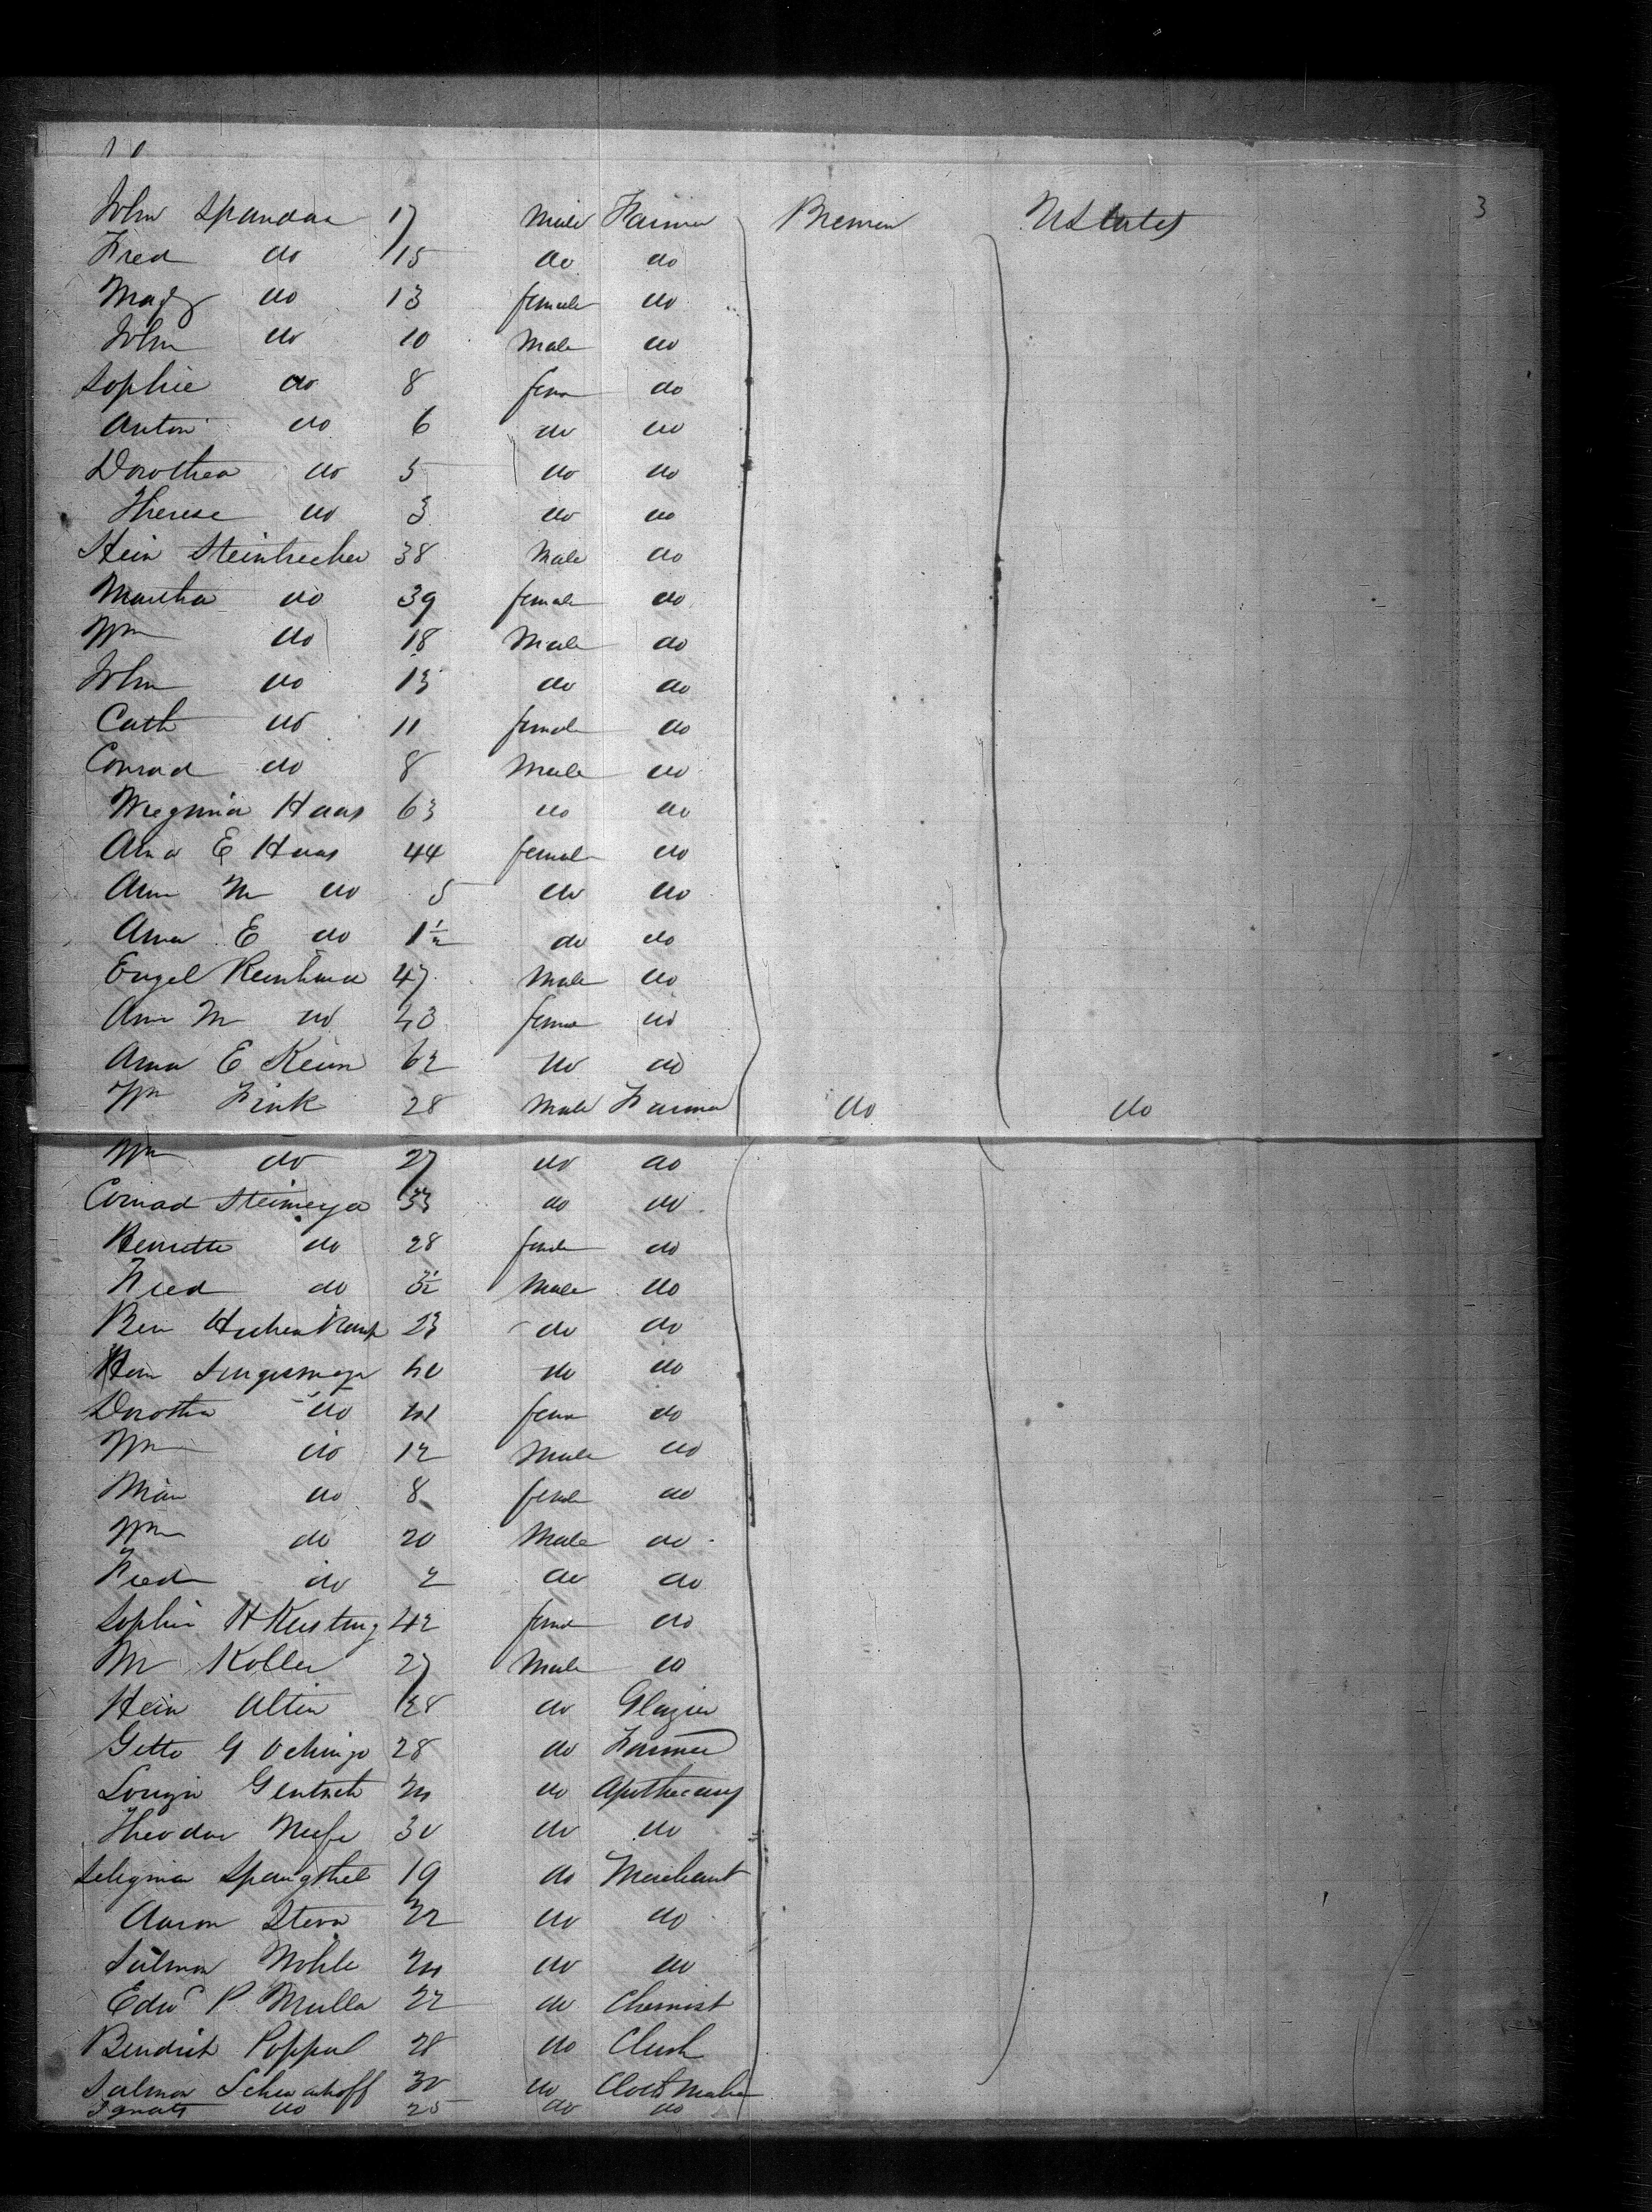 3
John Spandau 17 Male Farmer Bremen UStates
Fred do 15 do do
Mary do 13 female do
John do 10 Male do
Sophie do 8 fem do
Anton do 6 do do
Dorothea do 5 do do
Therese do 3 do do
Hein Steinbrecher 38 Male do
Martha do 39 female do
Wm do 18 Male do
John do 13 do do
Cath do 11 female do
Conrad do 8 Male do
Haas 63 do do
Anna E Haas 44 female do
Ann M do 5 do do
Anna E do 1½ do do
Engel Reinhard 47 Male do
Ann M do 43 female do
Anna E Keim 62 do do
Wm Fink 28 Male Farmer do do
Wm do 27 do do
Conrad Steimeyer 33 do do
Henrette do 28 female do
Fred do Male do
Ben 23 do do
Hein do do
Dorothea do fem do
Wm do 12 Male do
do 8 female do
Wm do 20 Male do
Fred do 2 do do
Sophia H Keisting 42 fem do
M Koller 27 Male do
Hein Alten 28 do Glazier
G 28 do Farmer
Gentsch 24 do Apothecary
Theodor 30 do do
Seligman Spangthel 19 do Merchant
Aaron Stern 22 do do
Salmon 24 do do
Edwd P. Muller 22 do Chemist
Bendrich Poppul 28 do Clerk
Salmon 30 do Maker
Ignatz do 25 do do